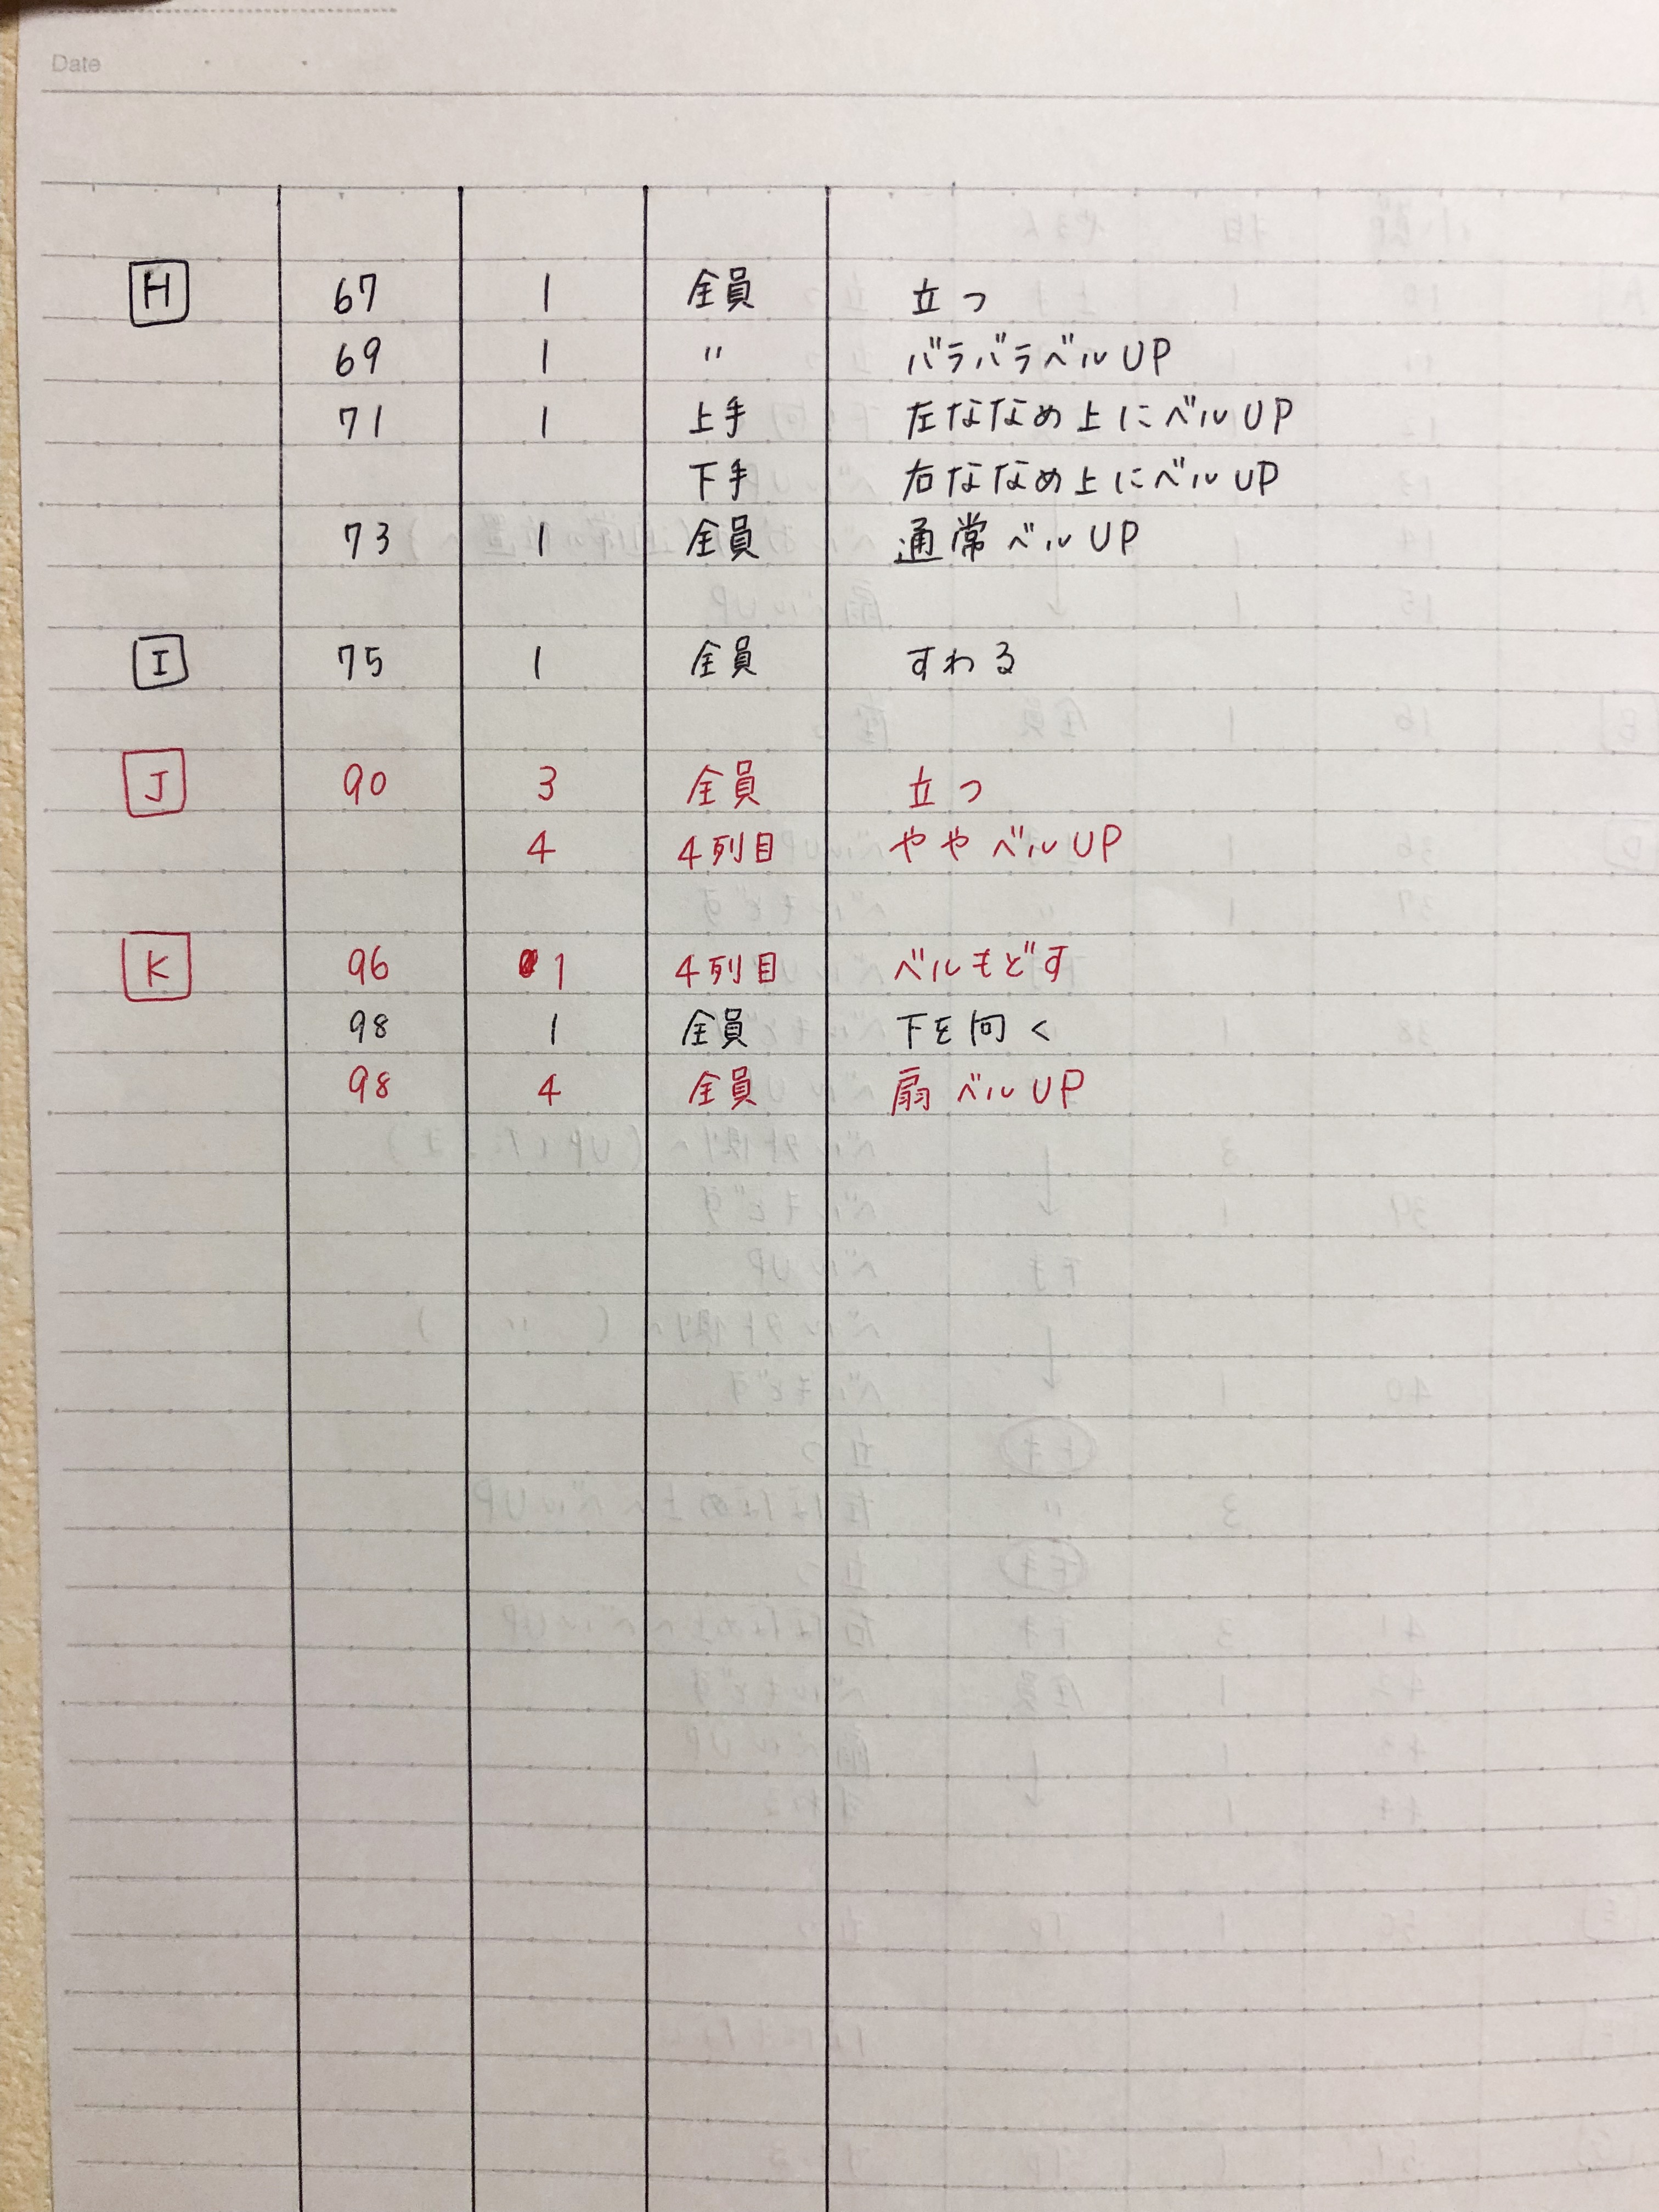 Date
H 67 1 全員 立つ
69 1 〃 バラバラベルUP
71 1 上手 左ななめ上にベルUP
下手 右ななめ上にベルUP
73 1 全員 通常ベルUP
I 75 1 全員 すわる
J 90 3 全員 立つ
4 4列目 ややベルUP
K 96 1 4列目 ベルもどす
98 1 全員 下を向く
98 4 全員 扇ベルUP